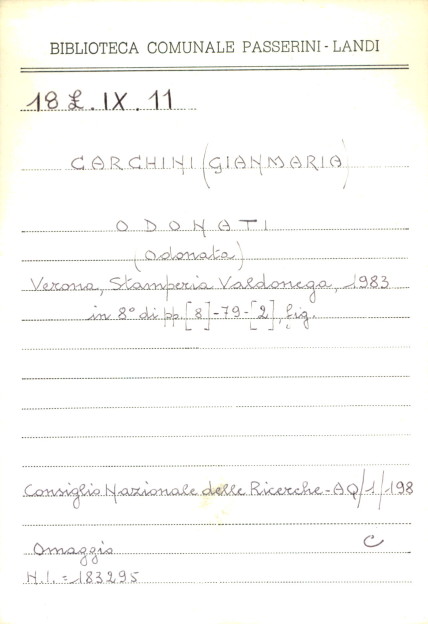 BIBLIOTECA COMUNALE PASSERINI-LANDI
18 £. IX. 11
CARCHINI (GIANMARIA)
ODONATI
(Odonata)
Verona, Stamperia Valdonega, 1983
in 8° di pp. [8]-79-[2], fig.
Consiglio Nazionale delle Ricerche-AQ/1/198
Omaggio C
N.I.=183295